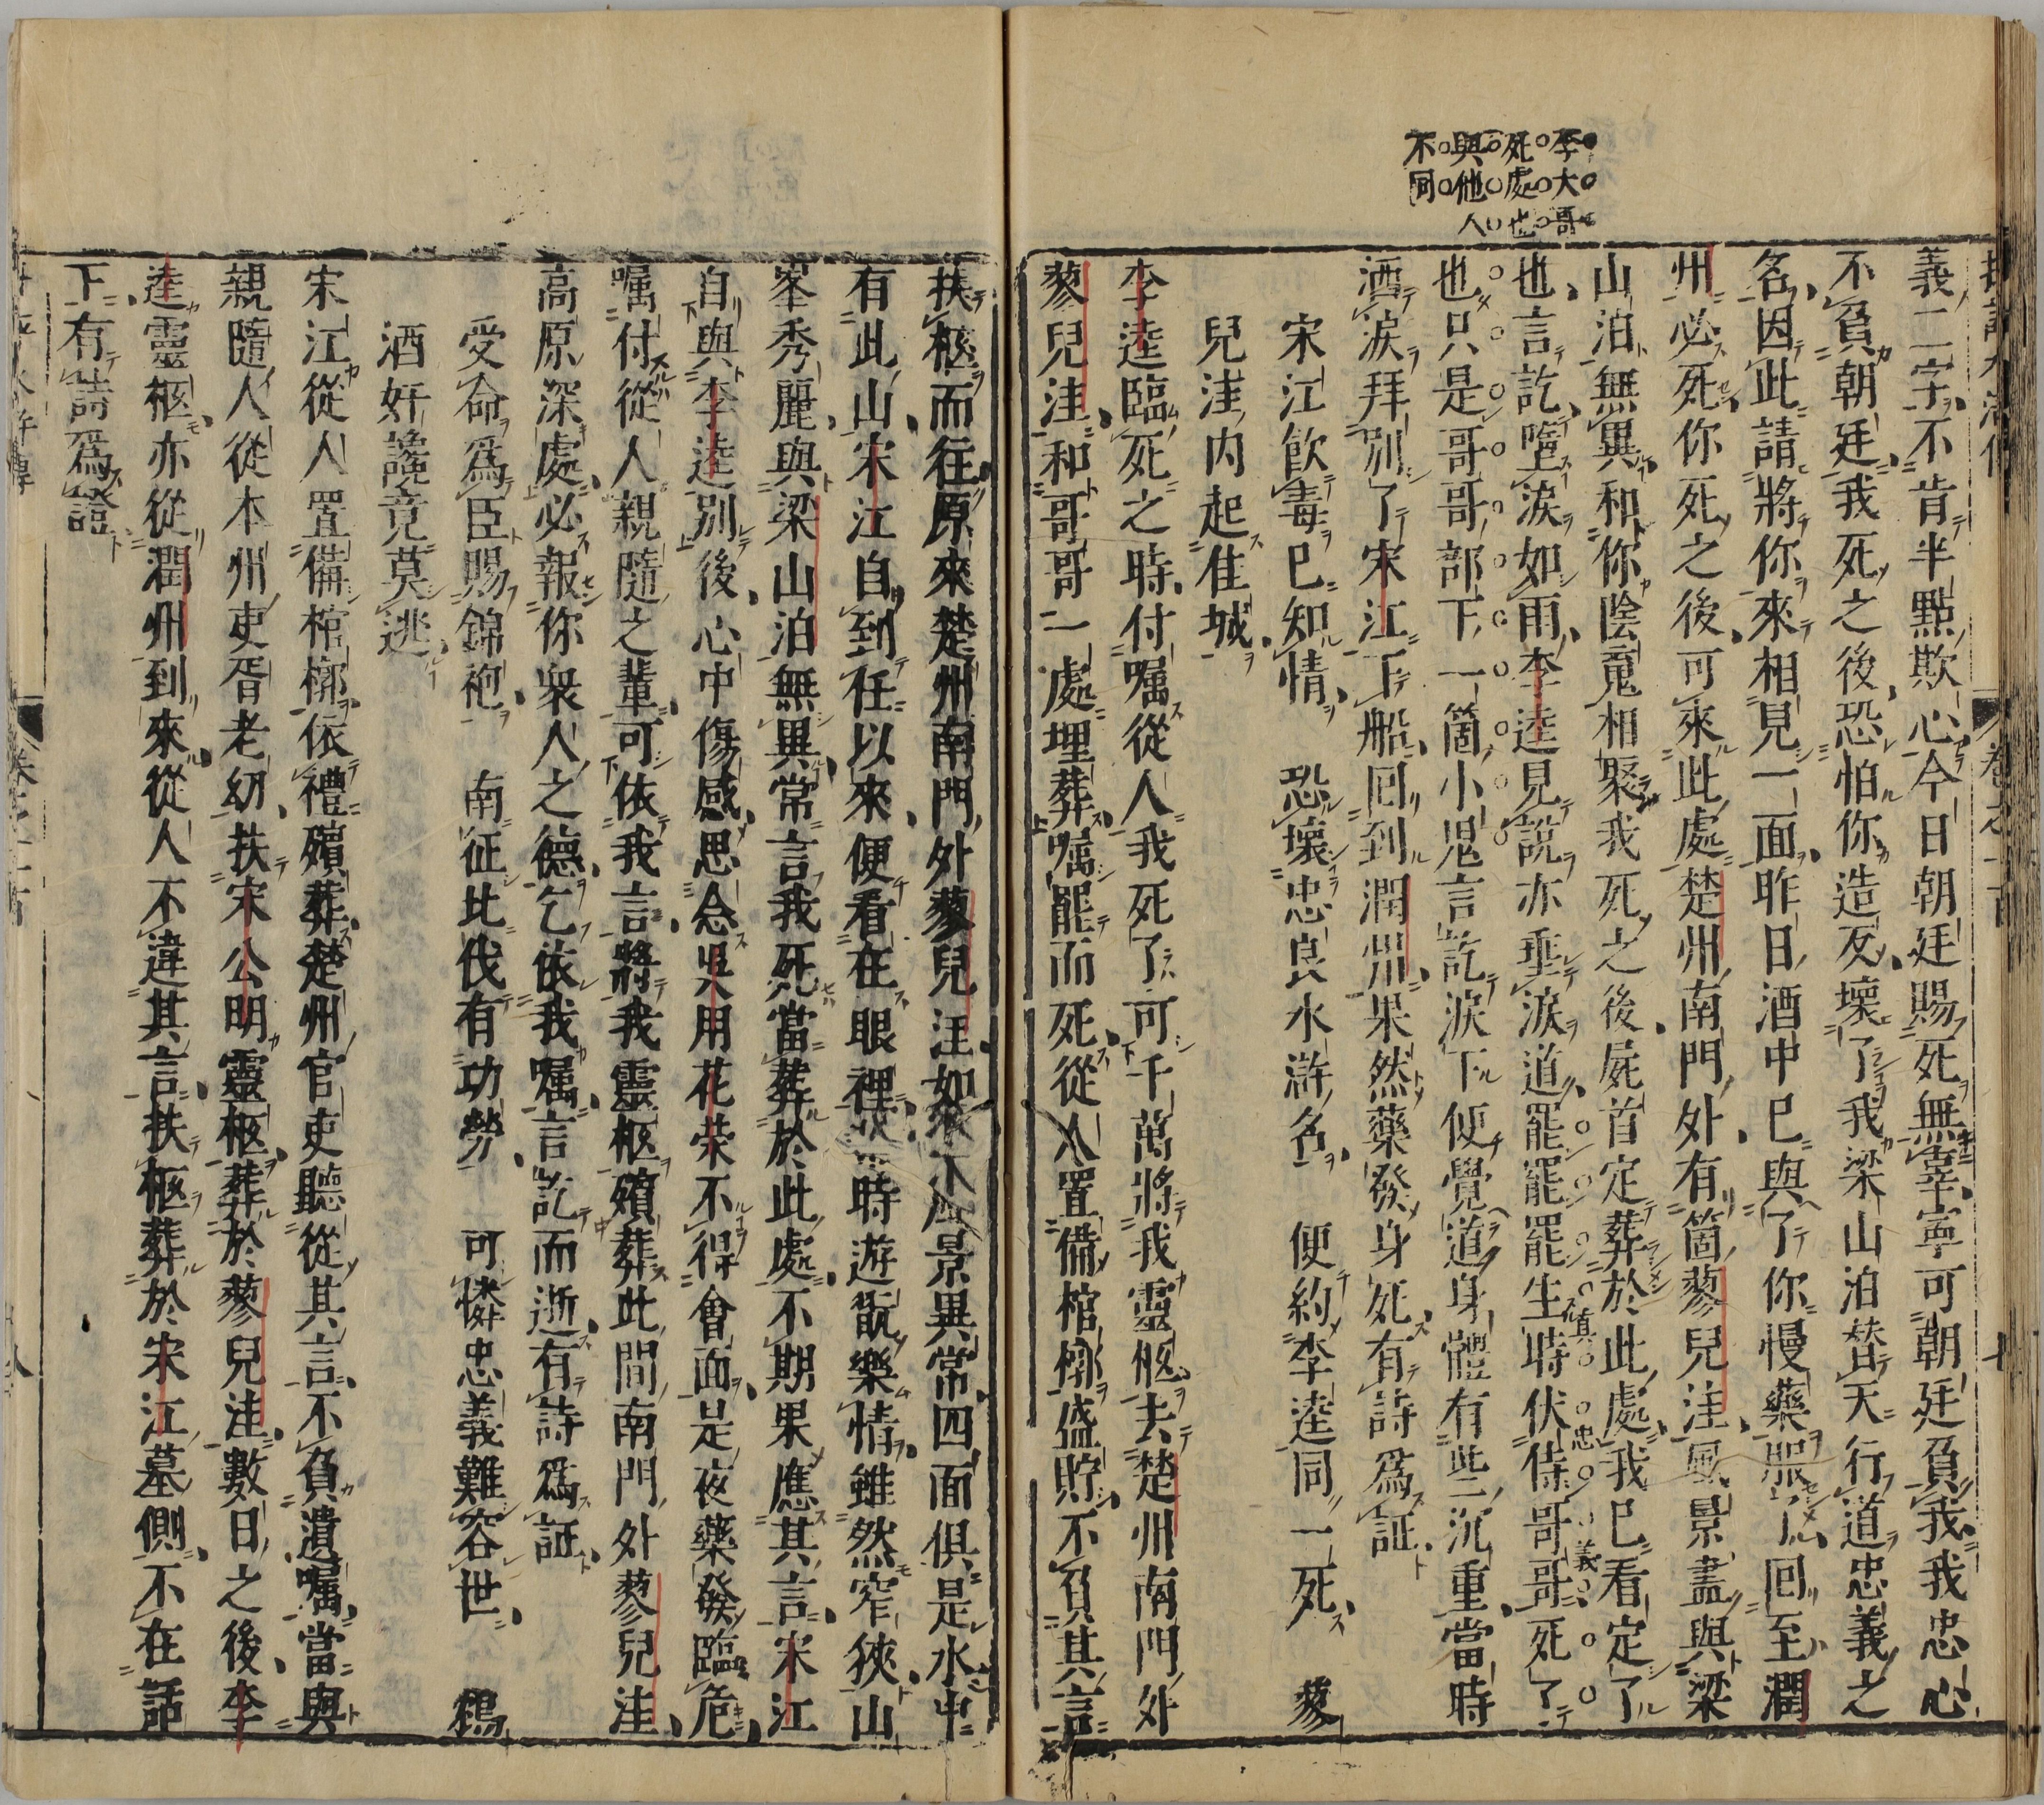 李大哥
死處也
與他人
不同
義二字不肯半點欺心今日朝廷賜死無辜寧可朝廷負我我忠心
不負朝廷我死之後恐怕你造反壞了我梁山泊替天行道忠義之
名因此請將你來相見一面昨日酒中已與了你慢藥服了回至潤
州必死你死之後可來此處楚州南門外有箇蓼兒洼風景盡與梁
山泊無異和你陰䰟相聚我死之後屍首定葬於此處我已看定了
也言訖墮淚如雨李逵見說亦垂淚道罷罷罷生時伏侍哥哥死了
真忠義
也只是哥哥部下一箇小鬼言訖淚下便覺道身體有些沉重當時
酒淚拜別了宋江下船回到潤州果然藥發身死有詩爲証
宋江飲毒已知情 恐壞忠良水滸名 便約李逵同一死 蓼
兒洼内起佳城
李逵臨死之時付嘱從人我死了可千萬將我靈柩去楚州南門外
蓼兒洼和哥哥一處埋葬嘱罷而死從人置備棺槨盛貯不負其言
扶柩而往原來楚州南門外蓼兒洼如來景異常四面俱是水中
有此山宋江自到任以來便看在眼裡時遊翫樂情雖然窄狹山
峯秀麗與梁山泊無異常言我死當葬於此處不期果應其言宋江
自與李逵別後心中傷感思念吳用花荣不得會面是夜藥發臨危
嘱付從人親隨之輩可依我言將我靈柩殯葬此間南門外蓼兒洼
高原深處必報你衆人之德乞依我嘱言訖而逝有詩爲証
受命爲臣賜錦袍 南征北伐有功勞 可憐忠義難容世 鴆
酒奸讒竟莫逃
宋江從人置備棺槨依禮殯葬楚州官吏聽從其言不負遺嘱當與
親隨人從本州吏胥老幼扶宋公明靈柩葬於蓼兒洼數日之後李
逵靈柩亦從潤州到來從人不違其言扶柩葬於宋江墓側不在話
下有詩爲證